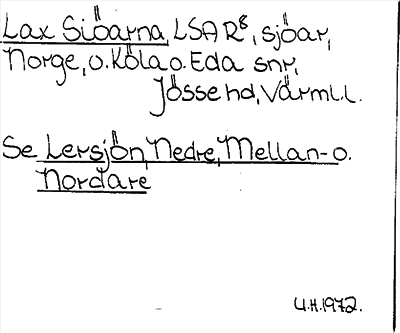 Lax Siöarna, LSA R8, sjöar,
Norge, o. Köla o. Eda snr,
Jösse hd, Värml.l.
Se Lersjön, Nedre, Mellan- o.
Nordare
U.H. 1972.